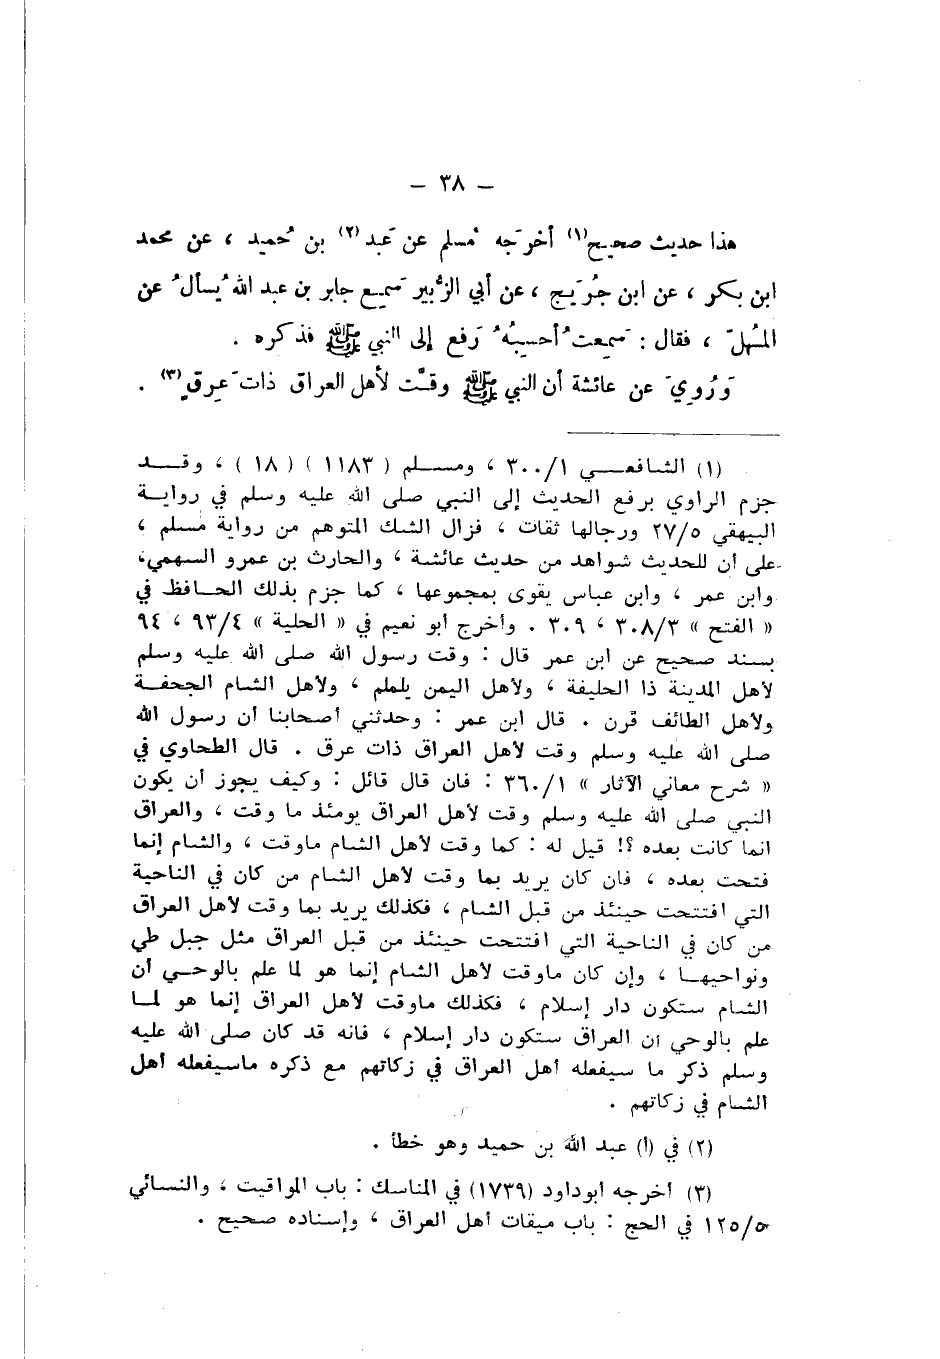 — ٣٨ —
هذا حديث صحيح(١) أخرَجه مُسلم عن عَبد(٢) بن حُميد ، عن محمد
ابن بكر ، عن ابن جُرَيج ، عن أبي الزُّبير سَمِيع جابر بن عبد الله يُسألُ عن
المُهلّ ، فقال : سَمِعتُ أحسِبُهُ رَفع إلى النبي ﷺ فذكره .
وَرُوِيَ عن عائشة أن النبي ﷺ وقَّت لأهل العراق ذاتَ عِرقٍ(٣) .
(١) الشافعــي ٣٠٠/١ ، ومســلم ( ١١٨٣ ) ( ١٨ ) ، وقــد
جزم الراوي برفع الحديث إلى النبي صلى الله عليه وسلم في روايــة
البيهقي ٢٧/٥ ورجالها ثقات ، فزال الشك المتوهم من رواية مسلم ،
على أن للحديث شواهد من حديث عائشة ، والحارث بن عمرو السهمي،
وابن عمر ، وابن عباس يقوى بمجموعها ، كما جزم بذلك الحــافظ في
« الفتح » ٣٠٨/٣ ، ٣٠٩ . وأخرج أبو نعيم في « الحلية » ٩٣/٤ ، ٩٤
بسند صحيح عن ابن عمر قال : وقت رسول الله صلى الله عليه وسلم
لأهل المدينة ذا الحليفة ، ولأهل اليمن يلملم ، ولأهل الشام الجحفــة
ولأهل الطائف قرن . قال ابن عمر : وحدثني أصحابنا أن رسول الله
صلى الله عليه وسلم وقت لأهل العراق ذات عرق . قال الطحاوي في
« شرح معاني الآثار » ٣٦٠/١ : فان قال قائل : وكيف يجوز أن يكون
النبي صلى الله عليه وسلم وقت لأهل العراق يومئذ ما وقت ، والعراق
انما كانت بعده ؟! قيل له : كما وقت لأهل الشام ماوقت ، والشام إنما
فتحت بعده ، فان كان يريد بما وقت لأهل الشام من كان في الناحية
التي افتتحت حينئذ من قبل الشام ، فكذلك يريد بما وقت لأهل العراق
من كان في الناحية التي افتتحت حينئذ من قبل العراق مثل جبل طي
ونواحيهــا ، وإن كان ماوقت لأهل الشام إنما هو لما علم بالوحــي أن
الشــام ستكون دار إسلام ، فكذلك ماوقت لأهل العراق إنما هو لمــا
علم بالوحي أن العراق ستكون دار إسلام ، فانه قد كان صلى الله عليه
وسلم ذكر ما سيفعله أهل العراق في زكاتهم مع ذكره ماسيفعله أهل
الشــام في زكاتهم .
(٢) في (أ) عبد الله بن حميد وهو خطأ .
(٣) أخرجه أبوداود (١٧٣٩) في المناسك : باب المواقيت ، والنســائي
١٢٥/٥ في الحج : باب ميقات أهل العراق ، وإسناده صحيح .